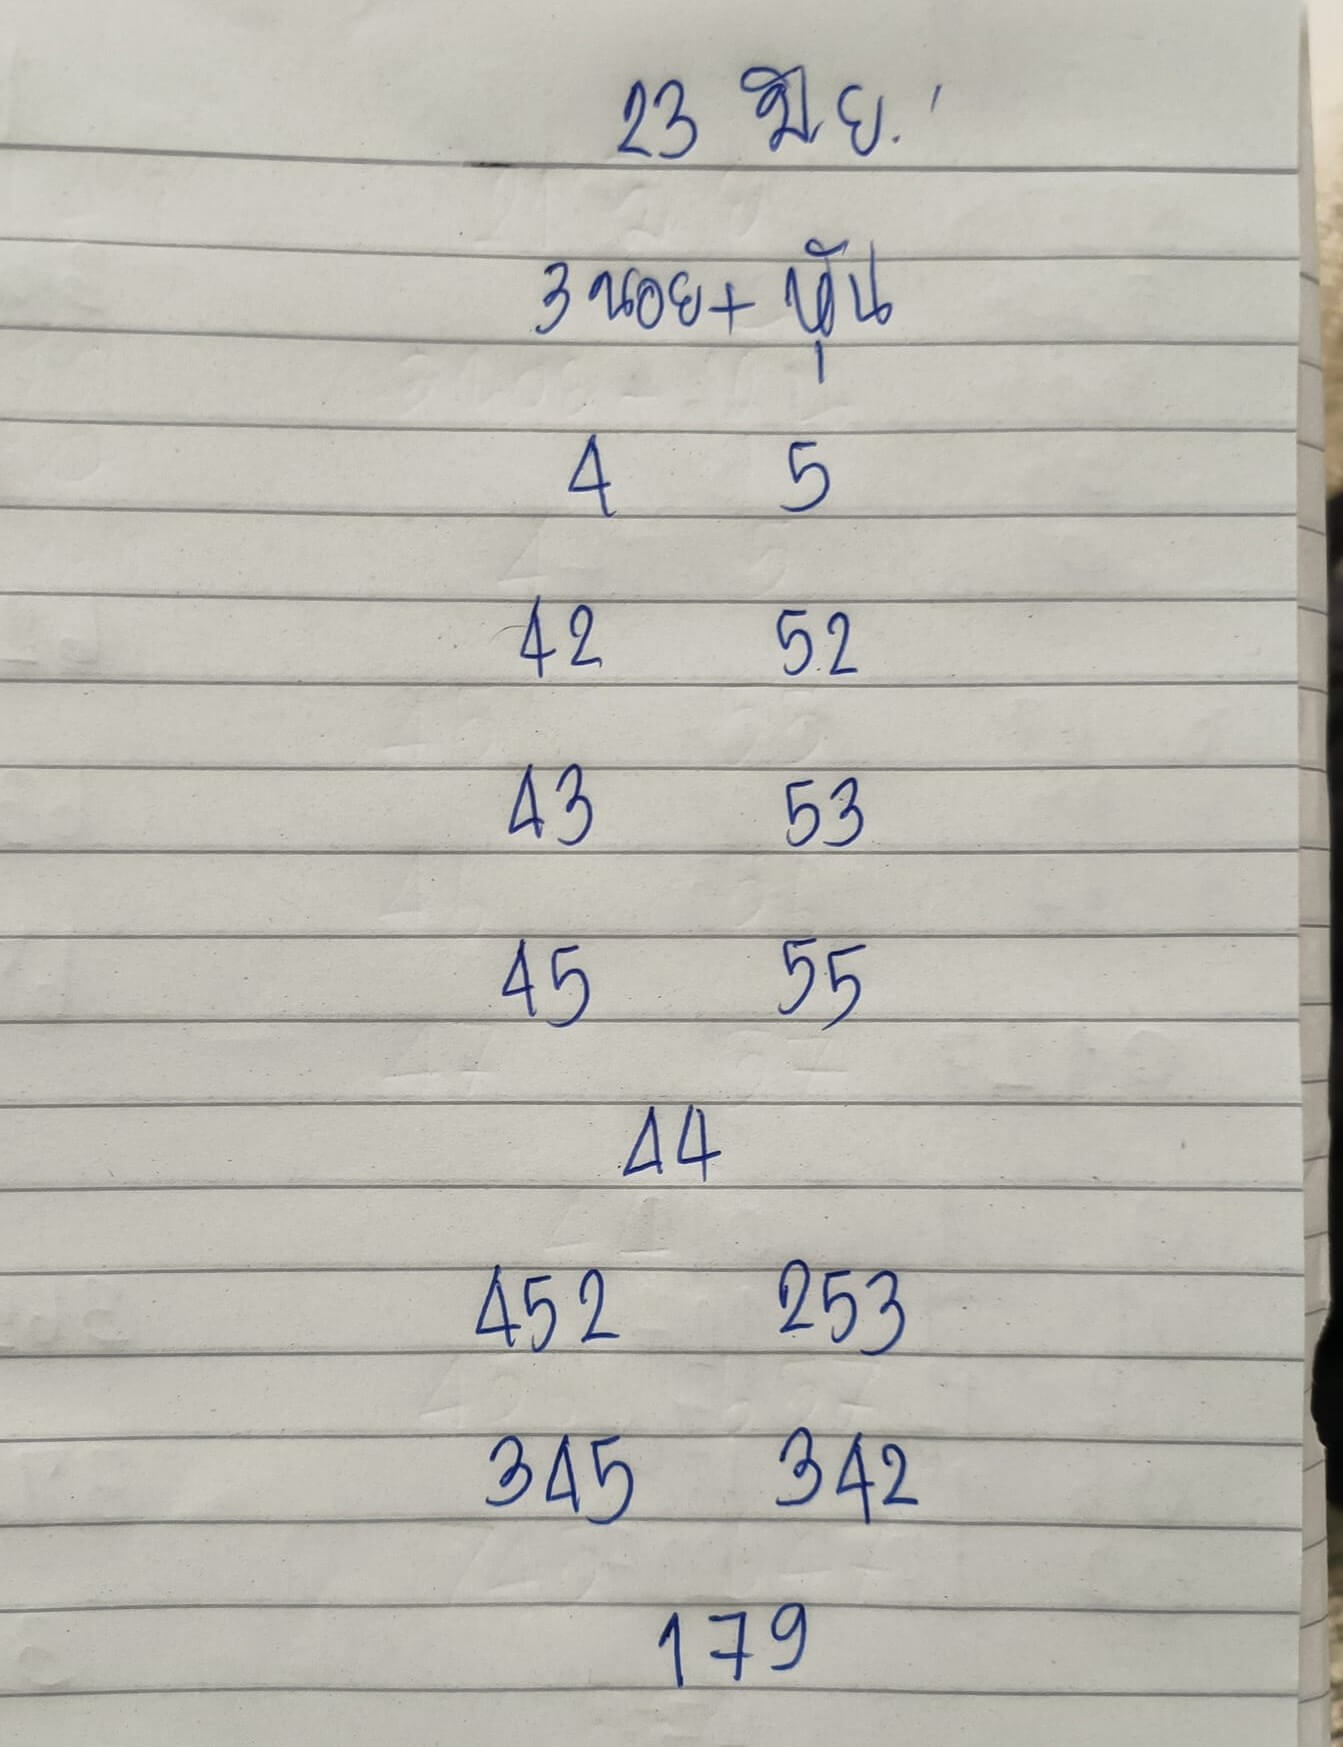 23 มิ.ย.
3 นอย + หุ้น
4 5
42 52
43 53
45 55
44
452 253
345 342
179